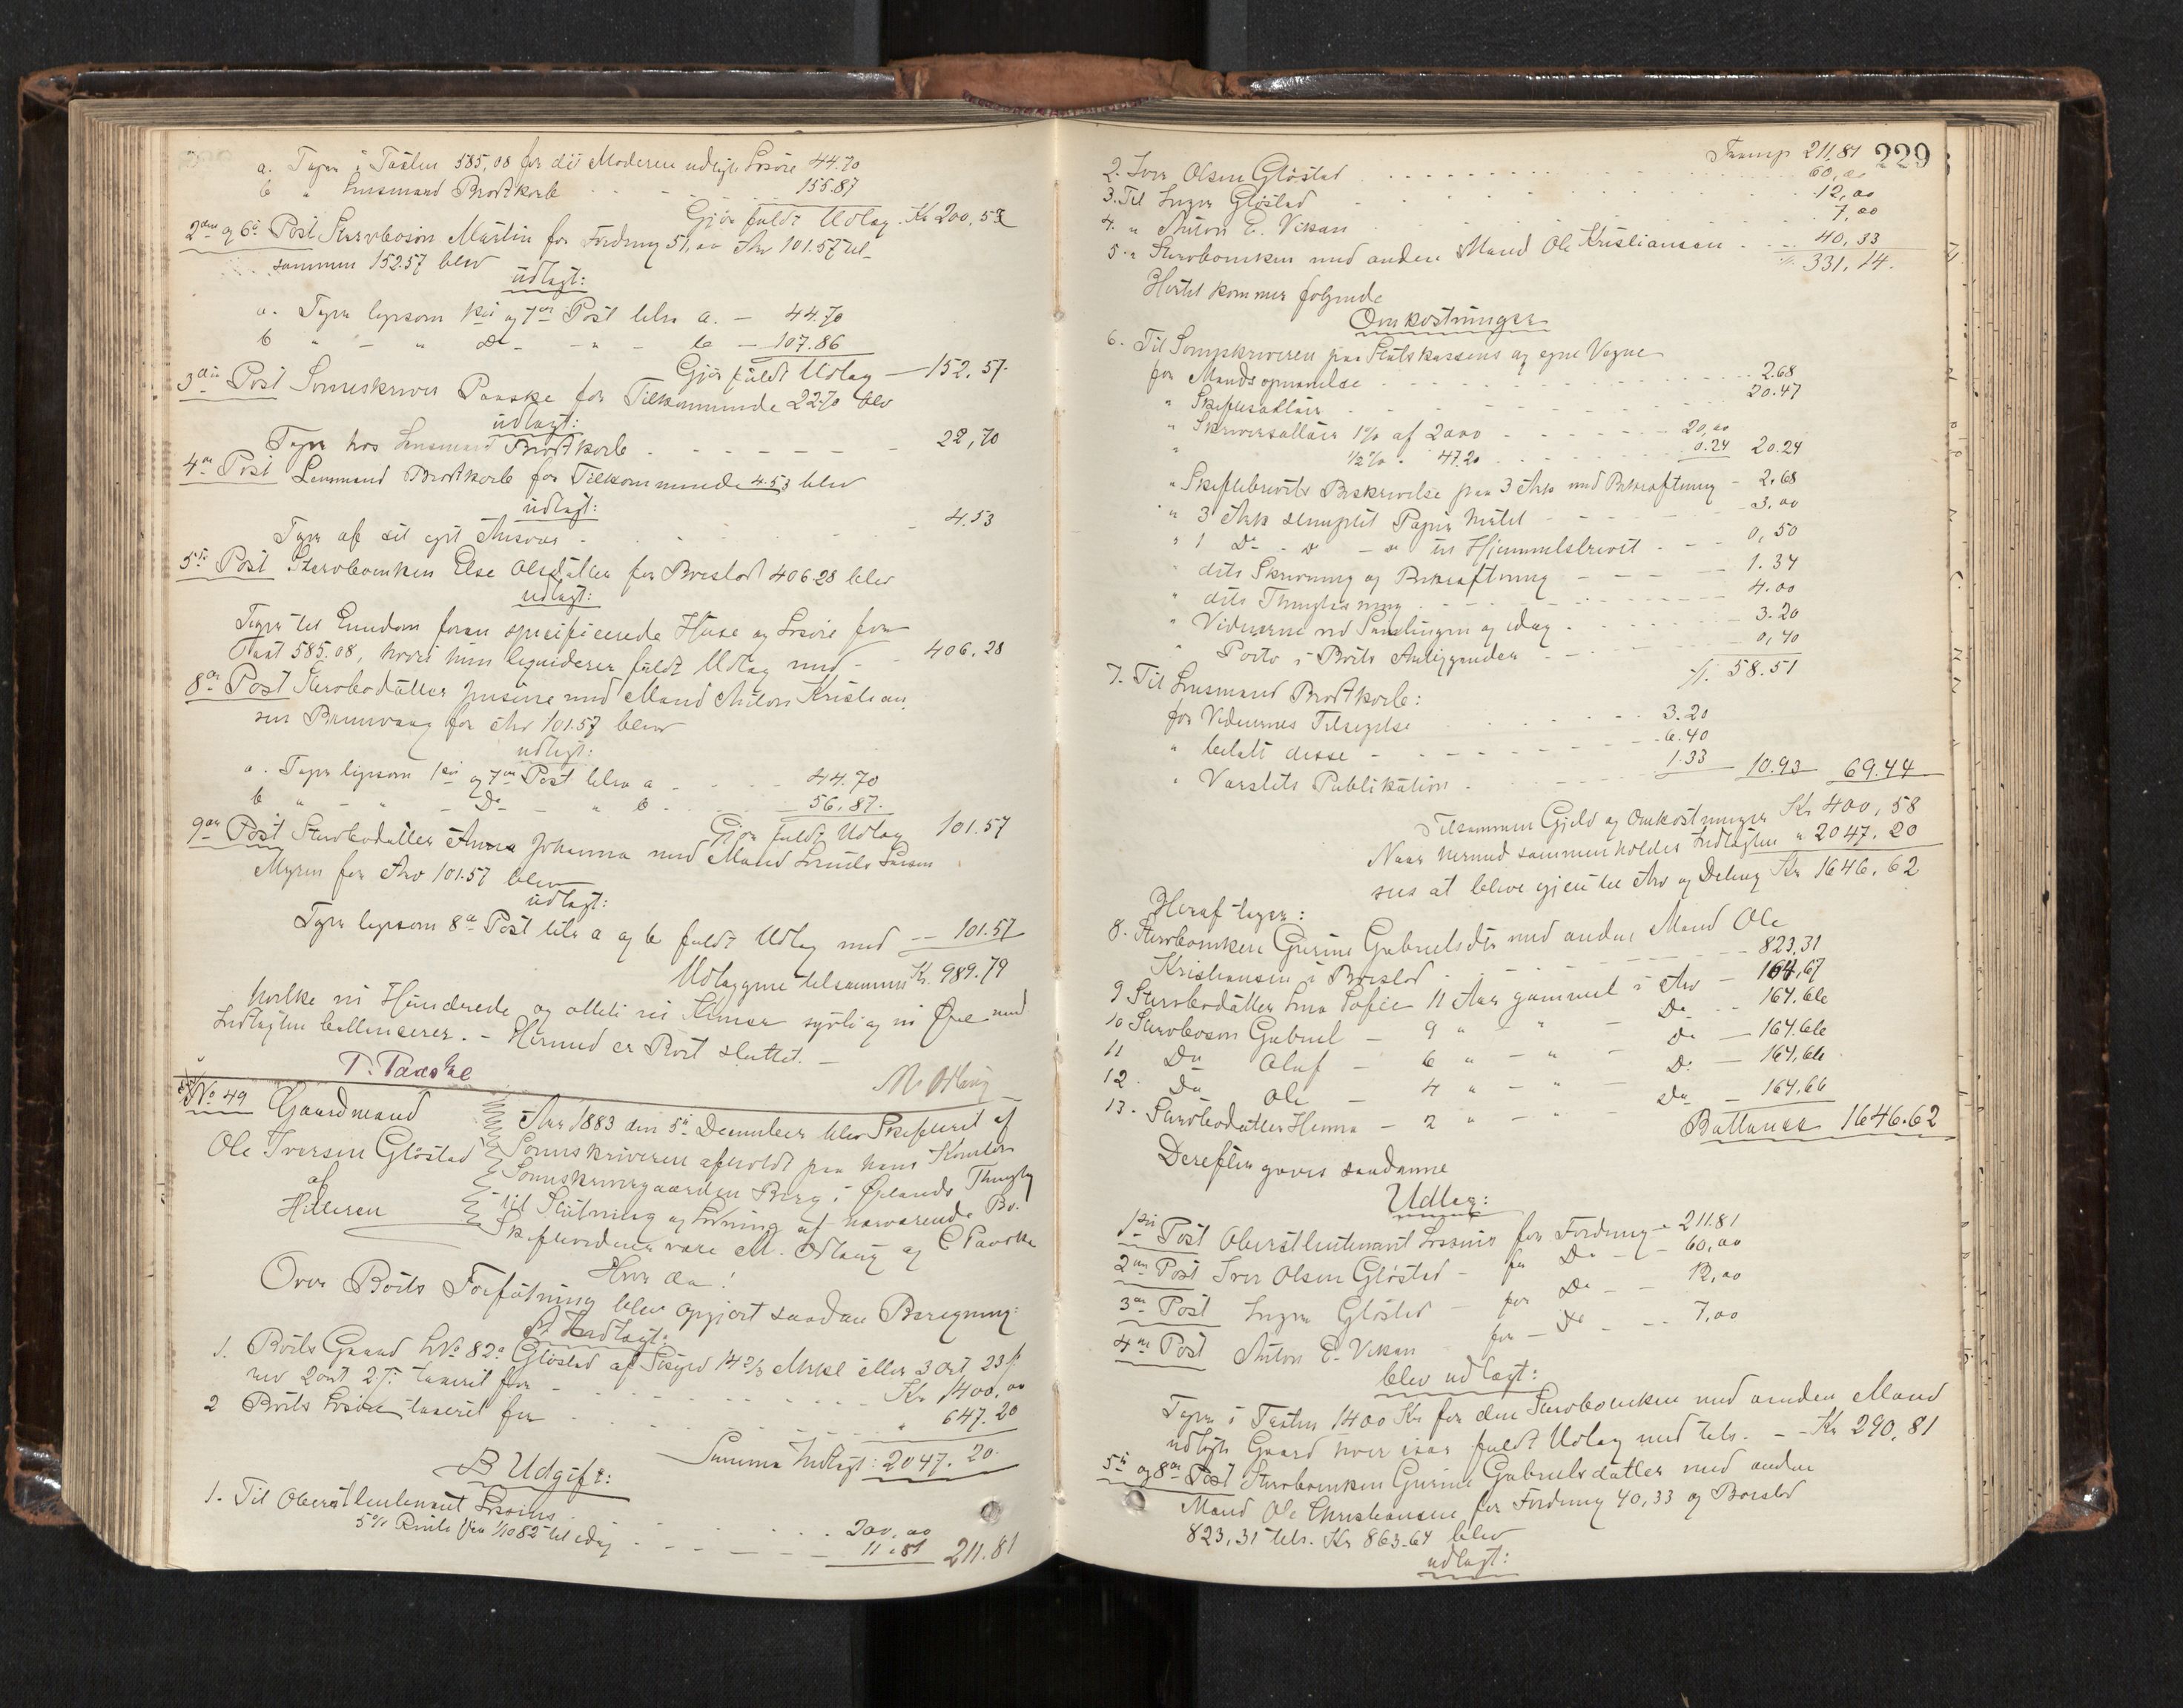 a. Tager i Taxten 585,08 for det Moderen udlagte Løsøre 44.70
b " Lensmand Brodtkorb - - - 155.87
Gjør fuldt Udlæg Kr 200,57
2den og 6te Post Stervbosøn Martin for Fordring 51,00 Arv 101.57 til-
sammen 152.57 blev
udlagt:
a. Tager ligesom 1ste og 7de Post litra a. - 44.70
b " - " Do - " - b - 107.86
Gjør fuldt Udlæg - 152,57.
3die Post Sorenskriver Paaske for Tilkommende 22.70 blev
udlagt:
Tager hos Lensmand Brodtkorb - - - - - 22,70
4de Post Lensmand Brodtkorb for Tilkommende 4.53 blev
udlagt:
Tager af sit eget Ansvar - 4.53
5te Post Stervboenken Else Olsdatter for Boeslod 406.28 blev
udlagt:
Tager til Eiendom foran specificerede Huse og Løsøre for
Taxt 585.08, hvori hun liqviderer fuldt Udlæg med - - 406,28
8de Post Stervbodatter Jensine med Mand Anton Kristian-
sen Brunvang for Arv 101.57 blev
udlagt:
a. Tager ligesom 1ste og 7de Post litra a - - - 44.70
b " - " - Do - " b - - 56.87.
Gjør fuldt Udlæg 101.57
9de Post Stervbodatter Anna Johanna med Mand Larsen
Myren for Arv 101.57 blev
udlagt:
Tager ligesom 8de Post litr a og b fuldt Udlæg med -- 101.57
Udlæggene tilsammen Kr. 989.79
hvilke ni Hundrede og otteti ni Kroner sytti og ni Øre med
Indtægten ballancerer. - Hermed er Boet sluttet. -
P. Paaske
M. Ødlaug
No 49 Gaardmand
Ole Iversen Gløstad
af
Hitteren
Aar 1883 den 5te December blev Skifteret af
Sorenskriveren afholdt paa hans Kontor
Sorenskrivergaarden Berg i Ørlands Thinglag
til Slutning og Lovning af nærværende Bo.
Skiftevidner vare M. Ødlaug og C Paaske
Hvor da!
Over Boets Forfatning blev opgjort saadan Beregning:
A Indtægt:
1. Boets Gaard L No 82a Gløstad af Skyld 14 2/3 Mrkl eller 3 ort 23 s
rev 2 ort 2 s. taxeret for - - - - - Kr 1400,00
2 Boets Løsøre taxeret for - - - - " 647.20
Summa Indtægt: 2047.20.
B Udgift:
1. Til Oberstleutenant Lossius
200,00
5% Rente fra 1/10 82 til idag - - - 11.81 211.81
229
Transp 211,81
2. Iver Olsen Gløstad - - - - 60,00
3. Til Inger Gløstad - - - 12,00
4. " Anton E. Vikan - - - 7,00
5. " Stervboenken med anden Mand Ole Kristiansen - - - 40,33
331,14.
Hertil kommer følgende
Omkostninger
6. Til Sorenskriveren paa Statskassens og egne Vegne
for Mandsopnævnelse - - - - 2.68
" Skiftesallair - - - - 20.47
" Skriversallair 1% af 2000 - - - - 20,00
" 1/2% " 47.20 - - - 0.24 20.24
" Skiftebrevets Beskrivelse paa 3 Ark med Bekræftning - 2.68
" 3 Ark stemplet Papir hertil - - - - 3.00
" 1 Do - Do - Do til Hjemmelsbrevet - - - 0,50
" dets Skrivning og Bekræftning - - - - 1.34
" dets Thinglæsning - - - - 4.00
" Vidnerne ved Samlingen og idag - - - - 3.20
" Porto i Boets Anliggender - - - - 0,40
58.51
7. Til Lensmand Brodtkorb:
for Vidnernes Tilsigelse - - - - 3.20
" betalt disse - - - - 6.40
" Varslets Publikation - - - 1.33 10.93 69.44
Tilsammen Gjeld og Omkostninger Kr 400,58
Naar hermed sammenholdes Indtægten " 2047.20
sees at blive igjen til Arv og Deling Kr 1646,62
Heraf tager:
8. Stervboenken Gurine Gabrielsdtr med anden Mand Ole
Kristiansen i Boeslod - - - - 823,31
9 Stervbodatter Lina Sofie 11 Aar gammel i Arv - 164,67
10 Stervbosøn Gabriel - 9 " - " - Do - 164.66
11 Do Oluf - 6 " - " - Do - 164.66
12. Do Ole - 4 " - " - Do - 164,66
13. Stervbodatter Hanna - 2 " - " - Do - 164.66
Ballance 1646.62
Derefter gaves saadanne
Udlæg:
1ste Post Oberstleutenant Lossius for Fordring - 211.81
2den Post Iver Olsen Gløstad - for Do - - 60,00
3die Post Inger Gløstad - for Do - - 12,00
4de Post Anton E. Vikan for - Do - - 7,00
blev udlagt:
Tager i Taxten 1400 Kr for den Stervboenken med anden Mand
udlagte Gaard hver især fuldt Udlæg med tils. - - Kr 290,81
5te og 8de Post Stervboenken Gurine Gabrielsdatter med anden
Mand Ole Christiansen for Fordring 40,33 og Boeslod
823,31 tils. Kr 863.64 blev
udlagt: